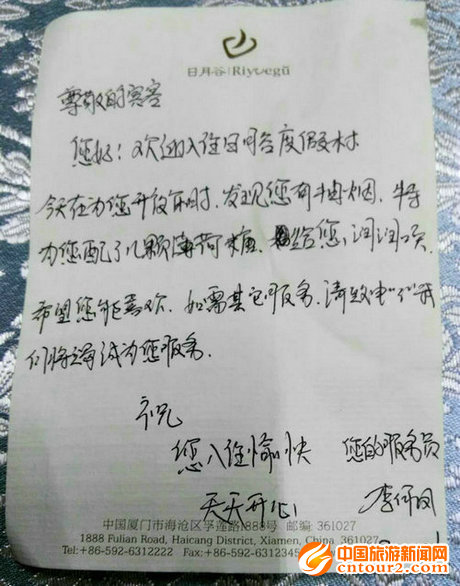 日月谷 Riyuegu
尊敬的宾客
您好！欢迎入住日月谷度假村
今天在为您开夜床时，发现您有抽烟，特
为您配了几颗薄荷糖 给您，润润喉
希望您能喜欢，如需其它服务，请致电"0"我
们将竭诚为您服务.
祝
您入住愉快 您的服务员
天天开心！ 李何凤
中国厦门市海沧区孚莲路888号 邮编 361027
1888 Fulian Road, Haicang District, Xiamen, China 361027
Tel:+86-592-6312222 Fax:+86-592-6312345
中国旅游新闻网
cntour2.com